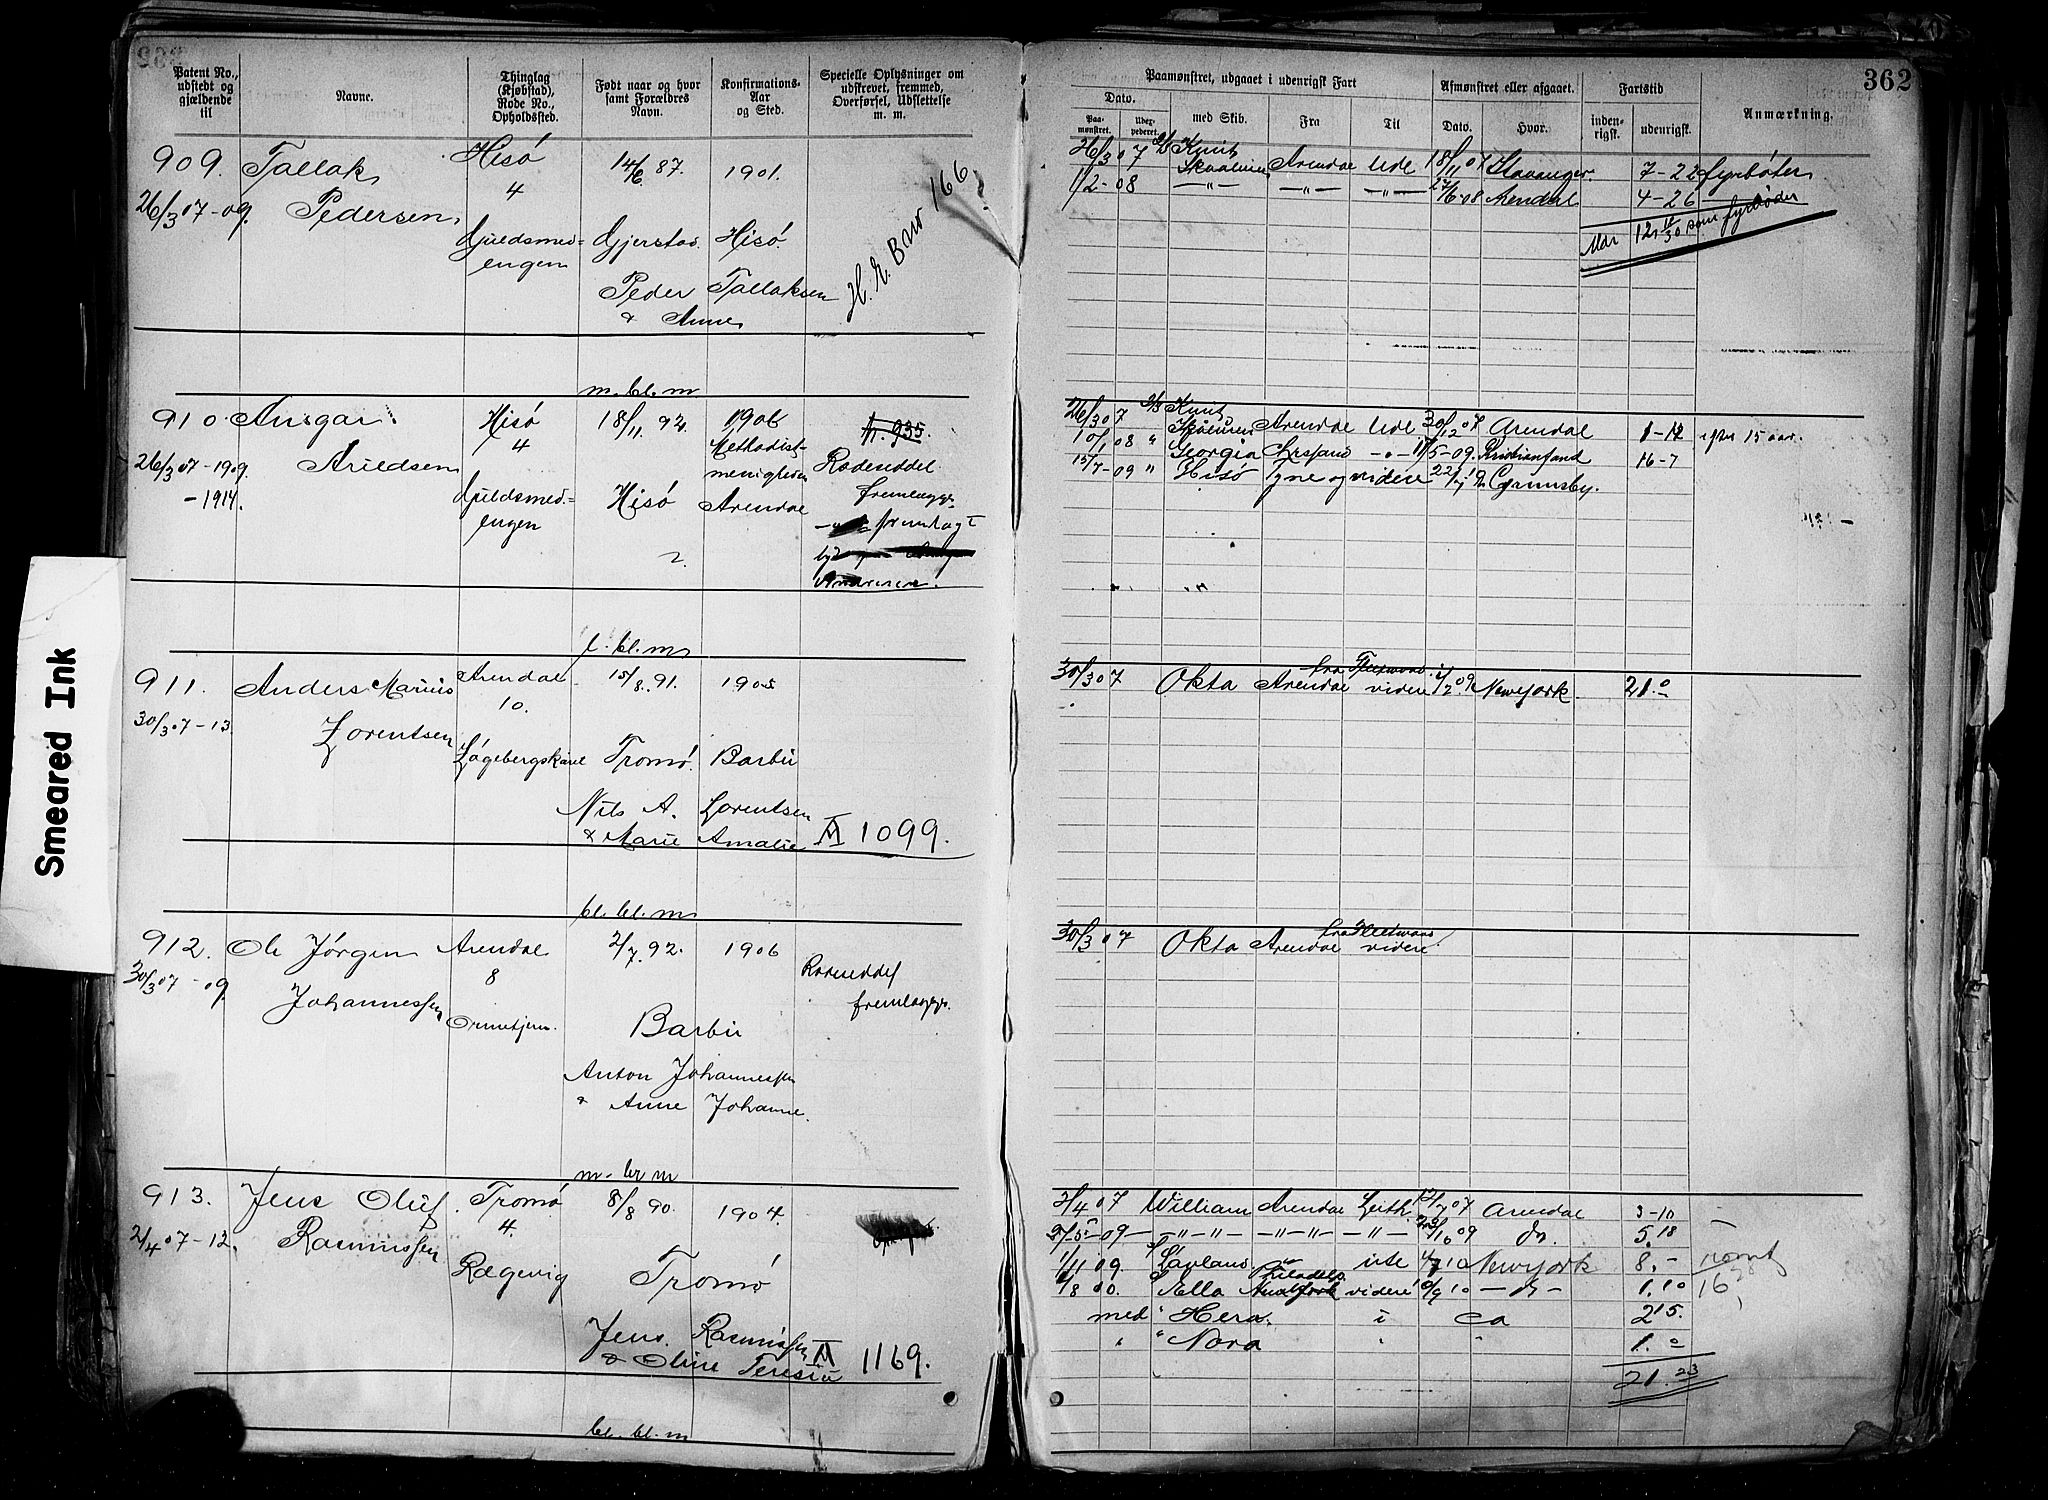 362
Patent No., udstedt og gjældende til
Navne.
Thinglag (Kjøbstad), Rode No., Opholdssted.
Født naar og hvor samt Forældres Navn.
Konfirmations-Aar og Sted.
Specielle Oplysninger om udskrevet, fremmed, Overførsel, Udslettelse m. m.
Paamønstret, udgaaet i udenrigsk Fart
Afmønstret eller afgaaet.
Fartstid
Anmærkning.
Dato.
Paamønstret.
Udexpederet.
med Skib.
Fra
Til
Dato.
Hvor.
indenrigsk.
udenrigsk.
909. Tallak Hisö 14/6 87. 1901.
4
26/3 07-09. Pedersen,
Guldsmedengen Gjerstad. Hisö
Peder Tallaksen
& Anne
H. E. B 166
26/3 07 Knut Skaaluren Arendal Ude 18/11 07 Stavanger. 7-22 fyrböter
1/2-08 -"- -"- -"- 27/6-08 Arendal 4-26
Mdr 12 18/30 som fyrböder
m. bl. m
910. Ansgar Hisö 18/11. 92. 1906
4 Methodistmenigheden
26/3 07-1909. Arildsen
-1914.
Guldsmedengen Hisö Arendal
N. 935.
Rodeseddel
fremlagt
26/3 07 Knut Skaaluren Arendal Ude 30/12 07 Arendal 1-12 efter 15 aar.
10/1 08 " Georgia Chrsand -"- 11/5-09. Kristiansand 16-7
15/7-09 " Hisö Tyne og videre 22/1 12 Grimsby.
l. bl. m
911. Anders Marius Arendal 15/8. 91. 1905
10.
30/3 07-13. Lorentsen
Lögebergskaret Tromö. Barbu
Nils A. Lorentsen
& Marie Amalie 1099.
30/3 07 Okta Arendal fra Fleetwood videre 1/2 09 Newyork. 21.0
bl. bl. m
912. Ole Jörgen Arendal 2/7. 92. 1906
8
30/3 07-09. Johannessen
Barbu
Rodeseddel
fremlagt.
Anton Johannessen
& Anne Johanne.
30/3 07 Okta Arendal fra Fleetwood videre
m. br m
913. Jens Oluf Tromö 8/8 90. 1904.
4.
2/4 07-12. Rasmussen
Rægevig Tromö
Jens Rasmussen
& Oline Teresia 1169.
2/4 07 William Arendal Leith 12/7 07 Arendal 3-10
5-09 -"- -"- -"- -"- 09 do. 5.18
1/11 09. Lapland ute 4/7 10 Newyork 8.-
6/8 10. Ella Philadelp. videre 10/9 10 -do- 1.10
med " Hera. i ca 2 15.
" " Nora " 1. 0
21.23
bl. bl. m
Smeared Ink